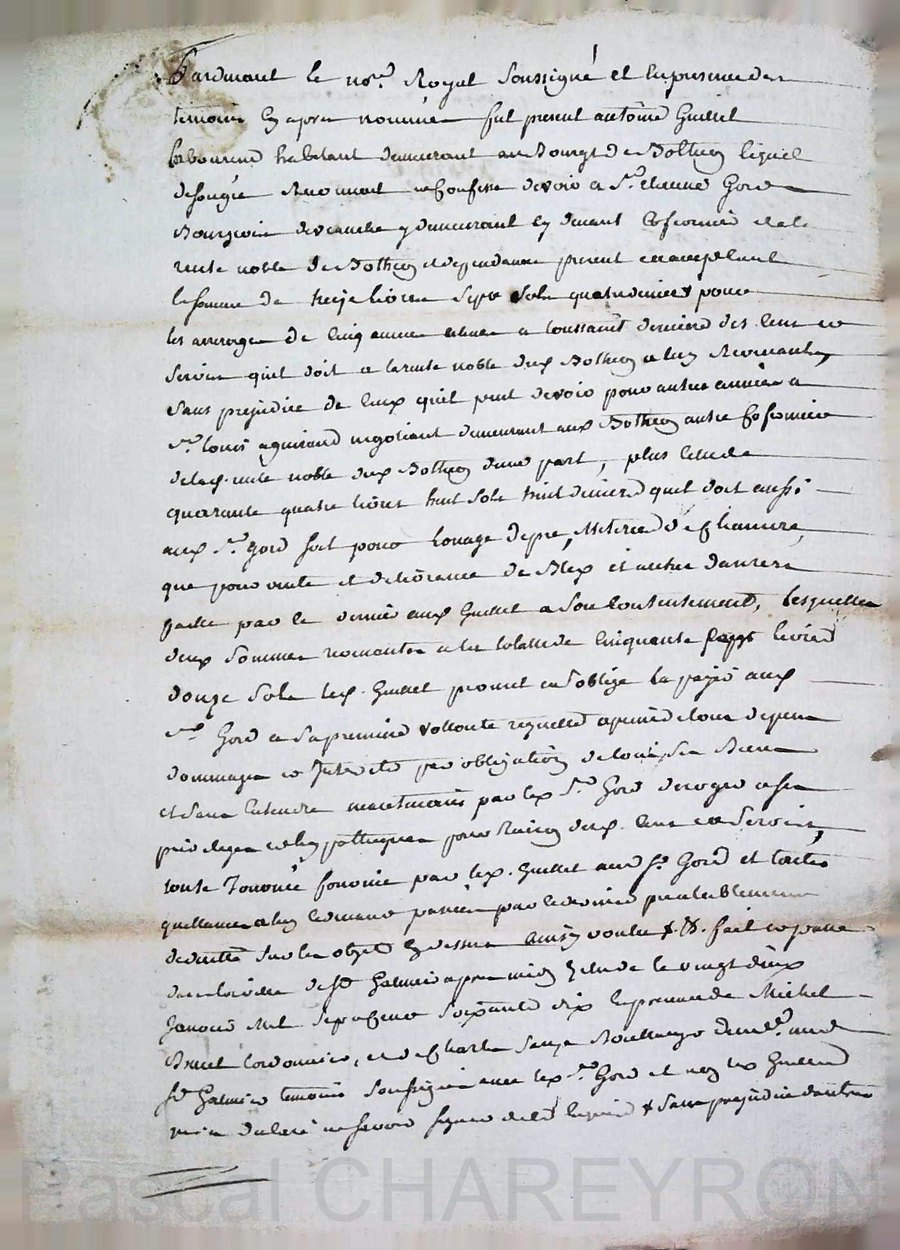 Pardevant le no.re Royal soussigné et en presence des
temoins cy apres nommés fut present antoine Guillet
laboureur habitant demeurant au Bourg de Bothéon lequel
de son gré Reconnoit et Confesse devoir a Sr. Gord
Bourgeois y demeurant cy devant Cofermier de la
rente noble de Bothéon et dependances present et acceptant
la somme de treize livres sept sols quatre deniers pour
les arrerages de Cinq années echues a toussaint dernier des Cens et
servis quil doit a la rente noble dud Bothéon
sans prejudice de Ceux quil peut devoir pour autres années a
Sr. Louis aguiraud negotiant demeurant aud Bothéon autre Cofermier
de lad. rente noble dud Bothéon dune part, plus Celle de
quarante quatre livres huit sols huit deniers quil doit aussi
aud Sr. Gord soit pour Louage de pre,
que pour vente et delivrance de Bled et autres danrées
faitte par ce dernier aud Guillet a son Contentement, Lesquelles
deux sommes remontes a la totalle de Cinquante sept livres
douze sols led. Guillet promet et soblige la payer aud
Sr. Gord a sa premiere vollonté requette a peine de tous depens
dommages et Interets par obligation de tous ses Biens
et sans entendre neantmoins par led Sr. Gord deroger a ses
privileges et hypotheques pour Raison desd. Cens et Servis,
toute fournie par led. Guillet aud Sr. Gord et toutes
quittances passées par ce dernier prealablement
deduittes sur les objets cy dessus ainsy voulu &. &. fait et passé
dans la ville de St Galmier apres midy Etude le vingt deux
Janvier Mil sept Cent soixante dix en presence de Michel
Bruel Cordonnier, et de Charles Boullanger dem.t aud
St Galmier temoins soussignés avec led Sr. Gord et non led Guillet
qui a declaré ne savoir signer de ce requis & sans prejudice dautres
Pascal CHAREYRON